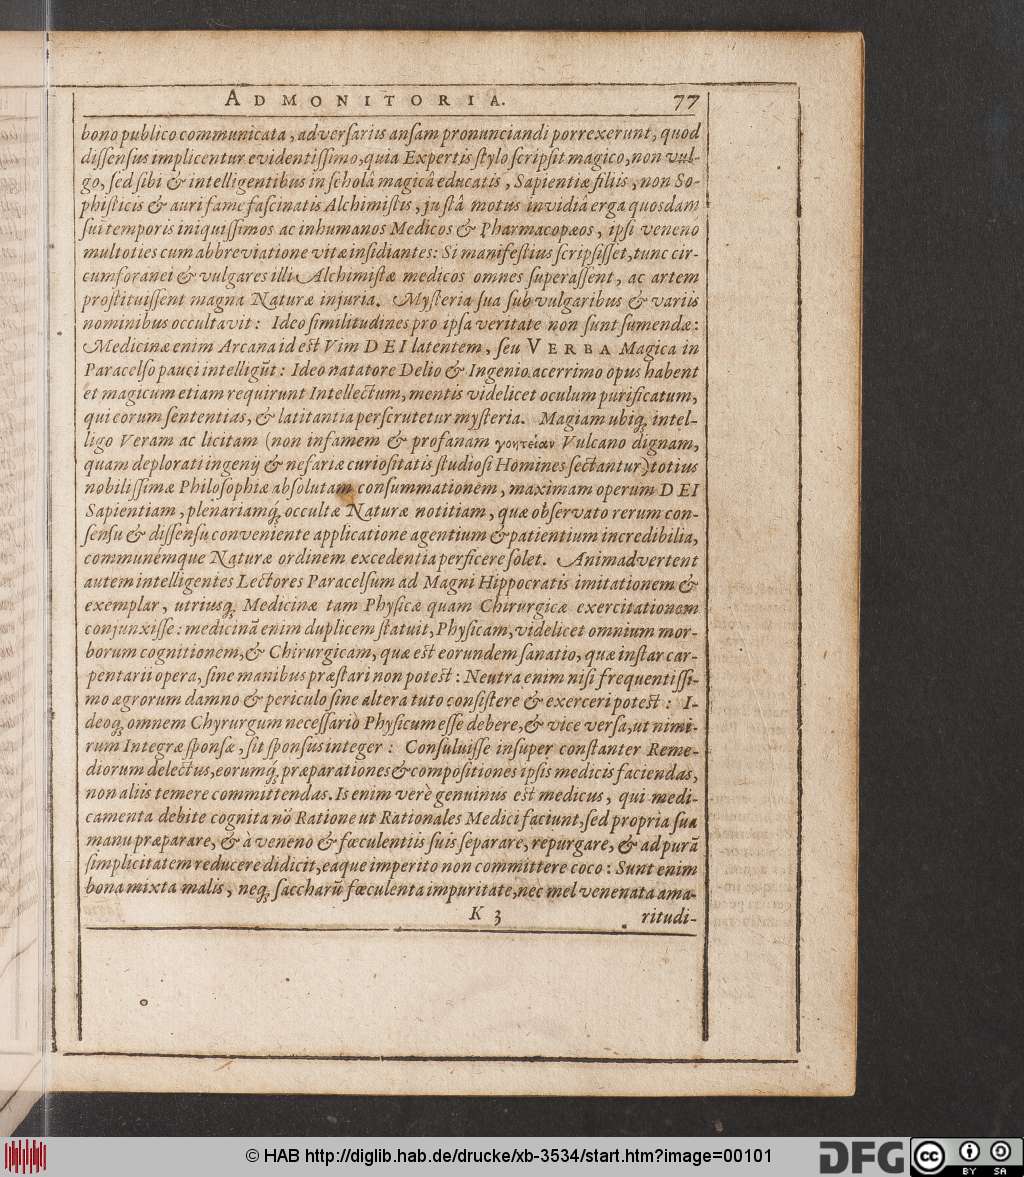 ADMONITORIA. 77
bono publico communicata, adversariis ansam pronunciandi porrexerunt, quod
dissensus implicentur evidentissimo, quia Expertis stylo scripsit magico, non vul-
go, sed sibi & intelligentibus in scholâ magicâ educatis, Sapientiæ filiis, non So-
phisticis & auri fame fascinatis Alchimistis, justâ motus invidiâ erga quosdam
sui temporis iniquissimos ac inhumanos Medicos & Pharmacopæos, ipsi veneno
multoties cum abbreviatione vitæ insidiantes: Si manifestius scripsisset, tunc cir-
cumforanei & vulgares illi Alchimistæ medicos omnes superassent, ac artem
prostituissent magna Naturæ injuria. Mysteria sua sub vulgaribus & variis
nominibus occultavit: Ideo similitudines pro ipsa veritate non sunt sumendæ:
Medicinæ enim Arcana id est Vim DEI latentem, seu VERBA Magica in
Paracelso pauci intelligũt: Ideo natatore Delio & Ingenio acerrimo opus habent
et magicum etiam requirunt Intellectum, mentis videlicet oculum purificatum,
qui eorum sententias, & latitantia perscrutetur mysteria. Magiam ubiq; intel-
ligo Veram ac licitam (non infamem & profanam γοητείαν Vulcano dignam,
quam deplorati ingenij & nefariæ curiositatis studiosi Homines sectantur) totius
nobilissimæ Philosophiæ absolutam consummationem, maximam operum DEI
Sapientiam, plenariamq́; occultæ Naturæ notitiam, quæ observato rerum con-
sensu & dissensu conveniente applicatione agentium & patientium incredibilia,
communémque Naturæ ordinem excedentia perficere solet. Animadvertent
autem intelligentes Lectores Paracelsum ad Magni Hippocratis imitationem &
exemplar, utriusq; Medicinæ tam Physicæ quam Chirurgicæ exercitationem
conjunxisse: medicinã enim duplicem statuit, Physicam, videlicet omnium mor-
borum cognitionem, & Chirurgicam, quæ est eorundem sanatio, quæ instar car-
pentarii opera, sine manibus præstari non potest: Neutra enim nisi frequentissi-
mo ægrorum damno & periculo sine altera tuto consistere & exerceri potest: I-
deoq; omnem Chyrurgum necessariò Physicum esse debere, & vice versa, ut nimi-
rum Integræ sponsæ, sit sponsus integer: Consuluisse insuper constanter Reme-
diorum delectus, eorumq́; præparationes & compositiones ipsis medicis faciendas,
non aliis temere committendas. Is enim verè genuinus est medicus, qui medi-
camenta debite cognita nõ Ratione ut Rationales Medici faciunt, sed propria sua
manu præparare, & à veneno & fœculentiis suis separare, repurgare, & ad purã
simplicitatem reducere didicit, eaque imperito non committere coco: Sunt enim
bona mixta malis, neq; saccharũ fœculenta impuritate, nec mel venenata ama-
K 3 ritudi-
© HAB http://diglib.hab.de/drucke/xb-3534/start.htm?image=00101
DFG
cc BY SA